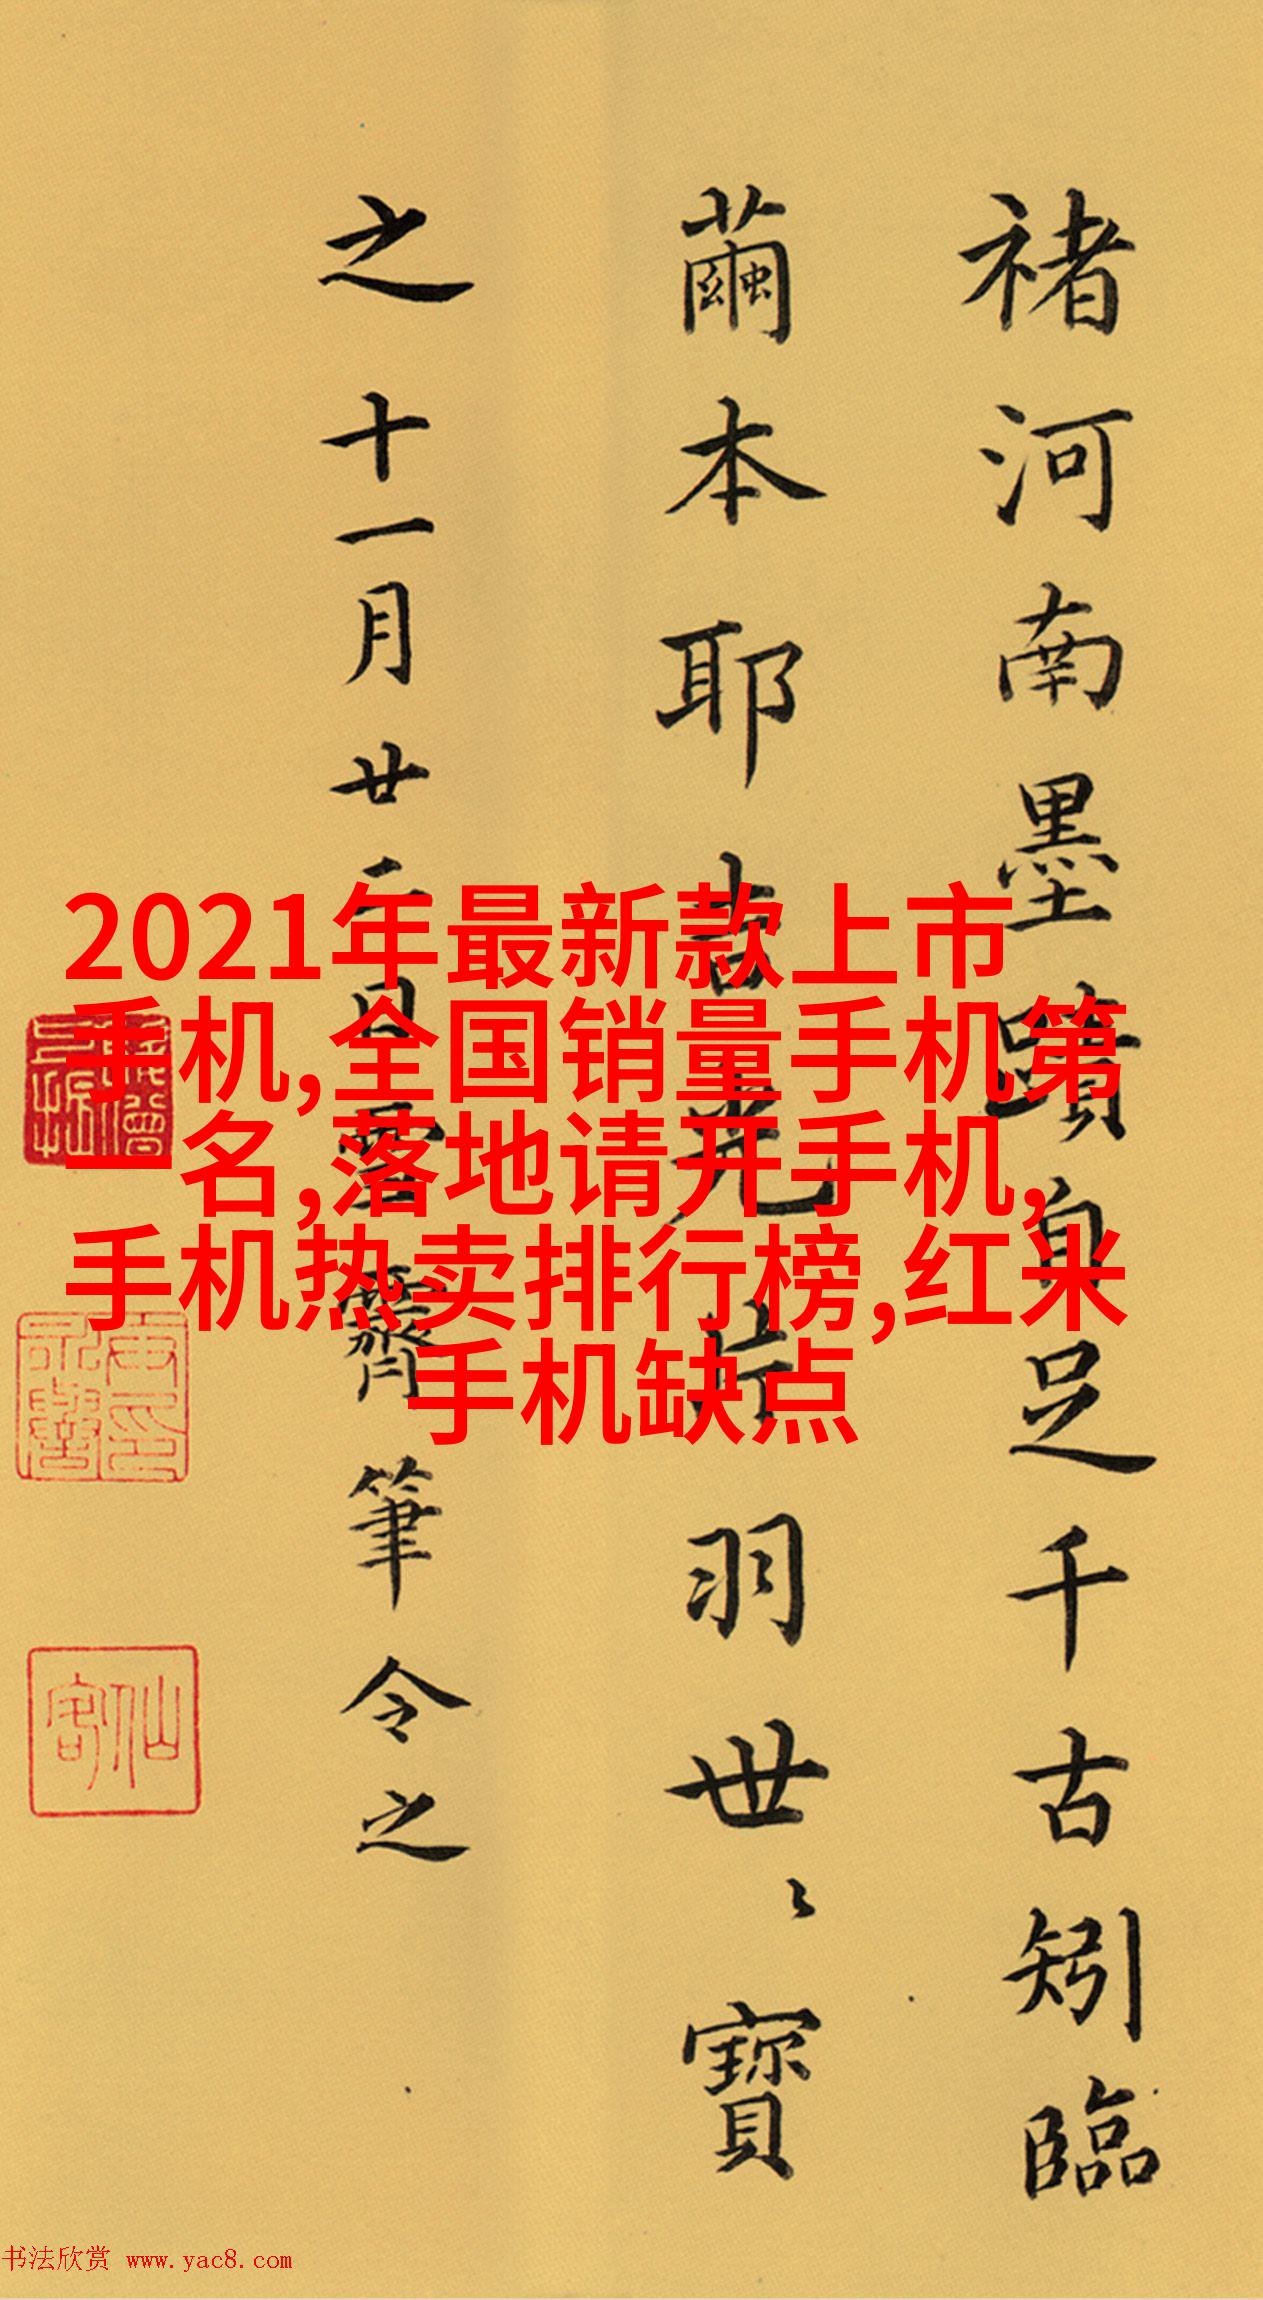 褚河南墨蹟自足千古矧臨
繭本耶吉光片羽世〻寶
之十一月廿二日雪齋筆令之
2021年最新款上市
手机,全国销量手机第
一名,落地请开手机,
手机热卖排行榜,红米
手机缺点
仙客
书法欣赏 www.yac8.com